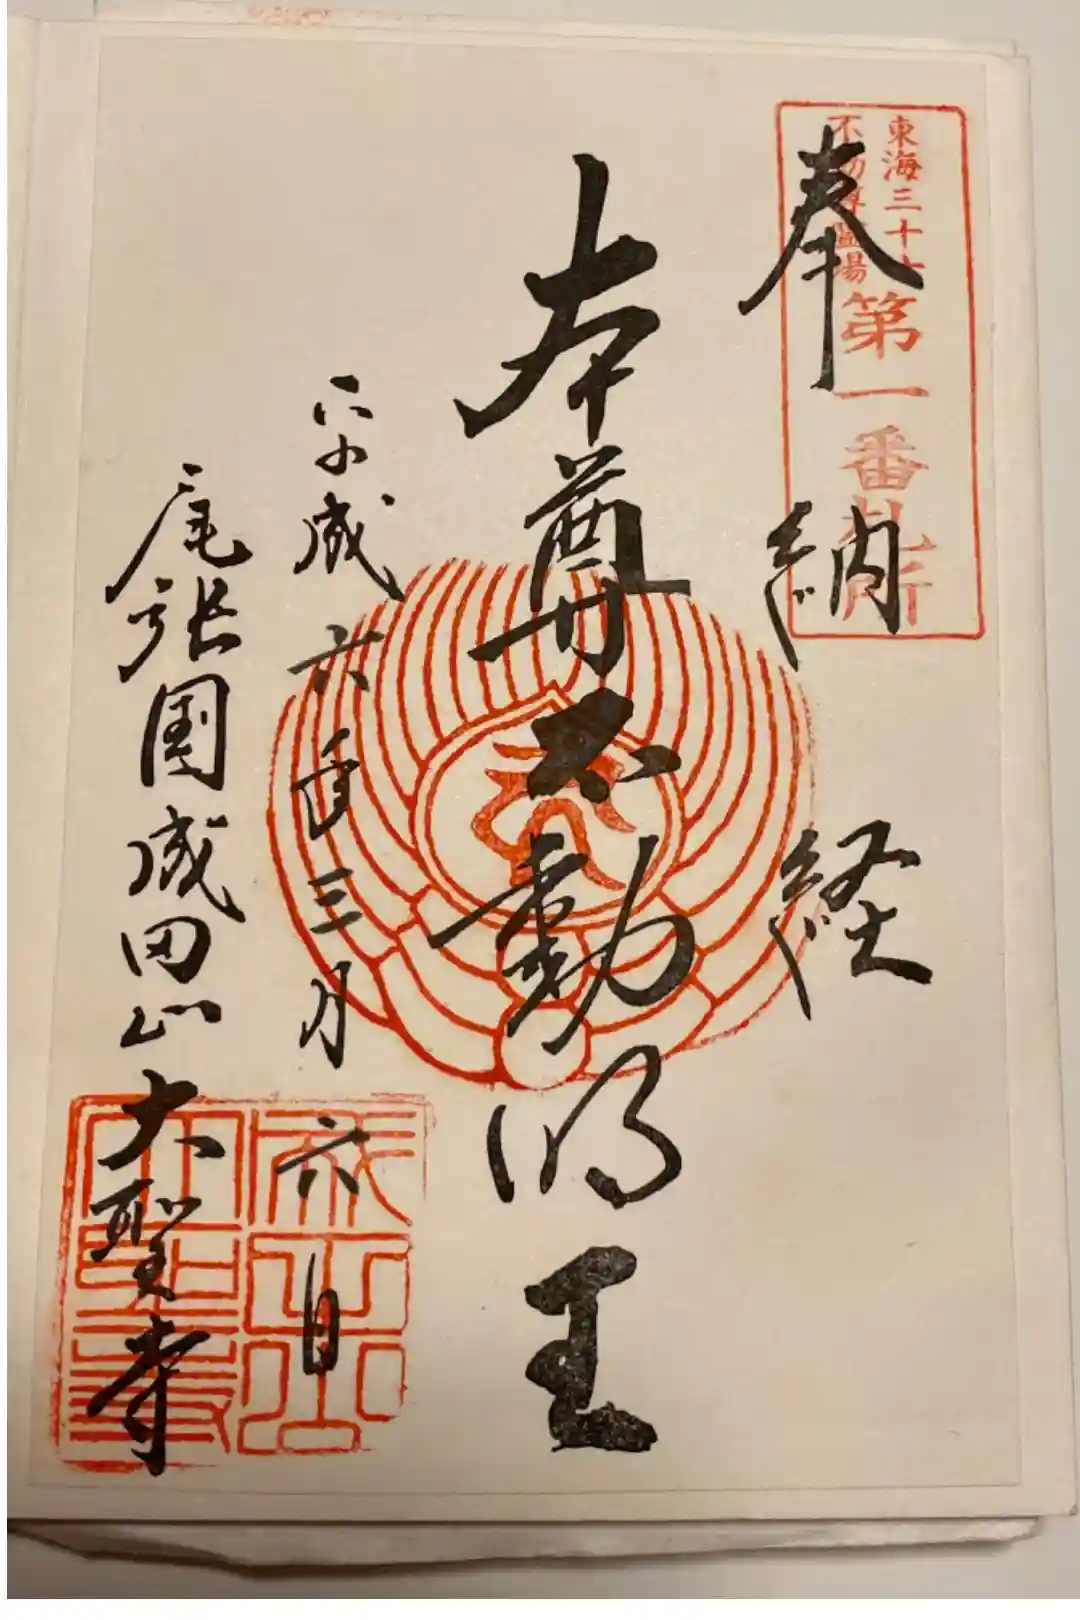 東海三十六
不動尊霊場
第一番札所
奉納経
本尊不動明王
平成六年三月六日
尾張国成田山大聖寺
成田山
大聖寺